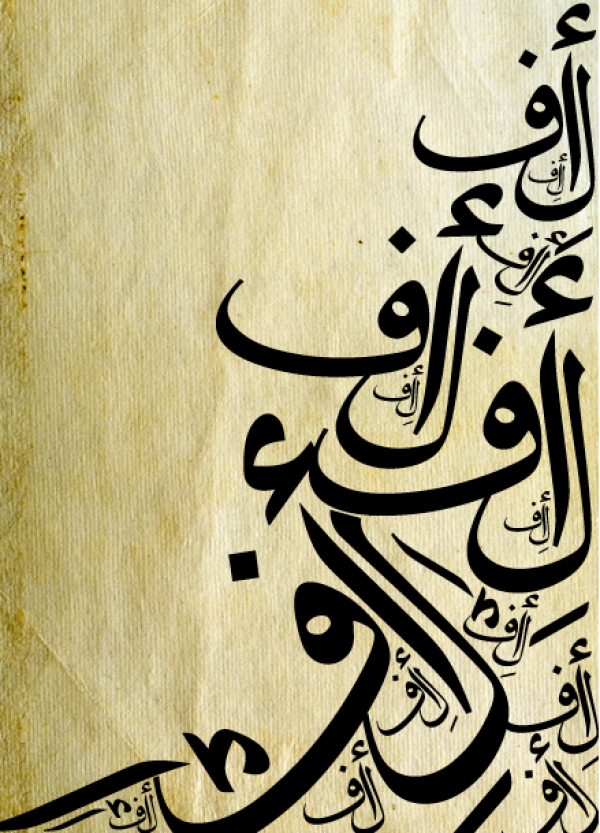 ألف
ألِف
ألِف
ألف
ألِف
ألف
ألِف
ألف
ألِف
ألِف
ألِف
ألف
ألف
ألف